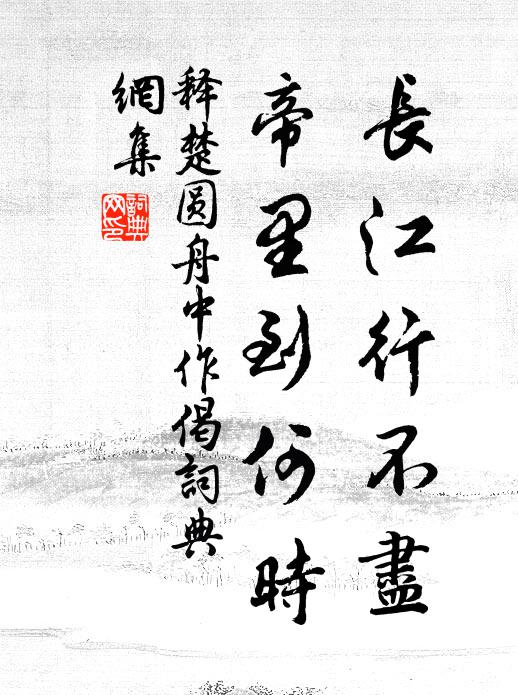 長江行不盡
帝里到何時
释楚圆舟中作偈詞典
網集
詞典
网印